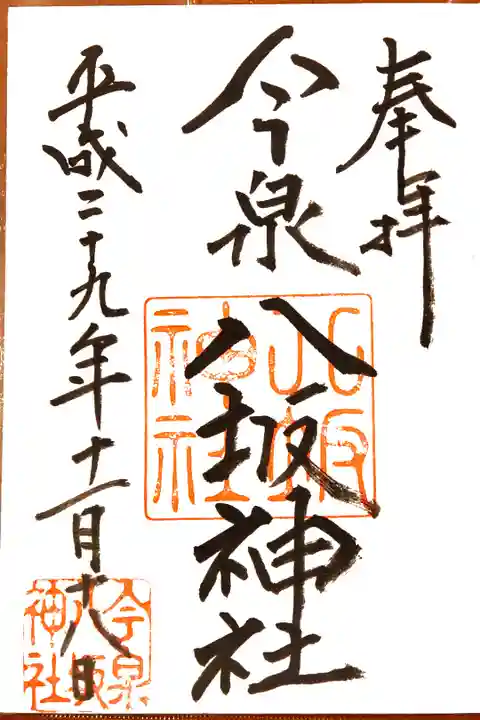 奉拝
今泉八坂神社
平成二十九年十一月十八日
八坂神社
今泉八坂神社